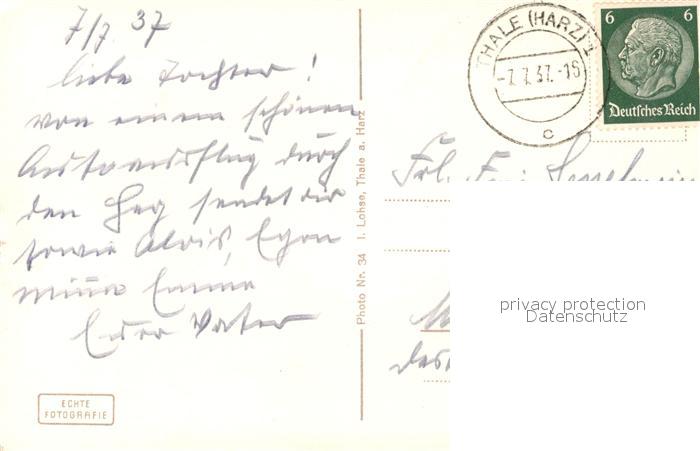 7/7. 37
liebe Tochter!
von einem schönen
durch
den Harz sendet dir
sowie Alois, Egon
Minna Emma
Euer Vater
ECHTE
FOTOGRAFIE
Photo Nr. 34 I. Lohse, Thale a. Harz
THALE (HARZ) 1
-7.7.37.-16
c
6 6
Deutsches Reich
Frl.
privacy protection
Datenschutz